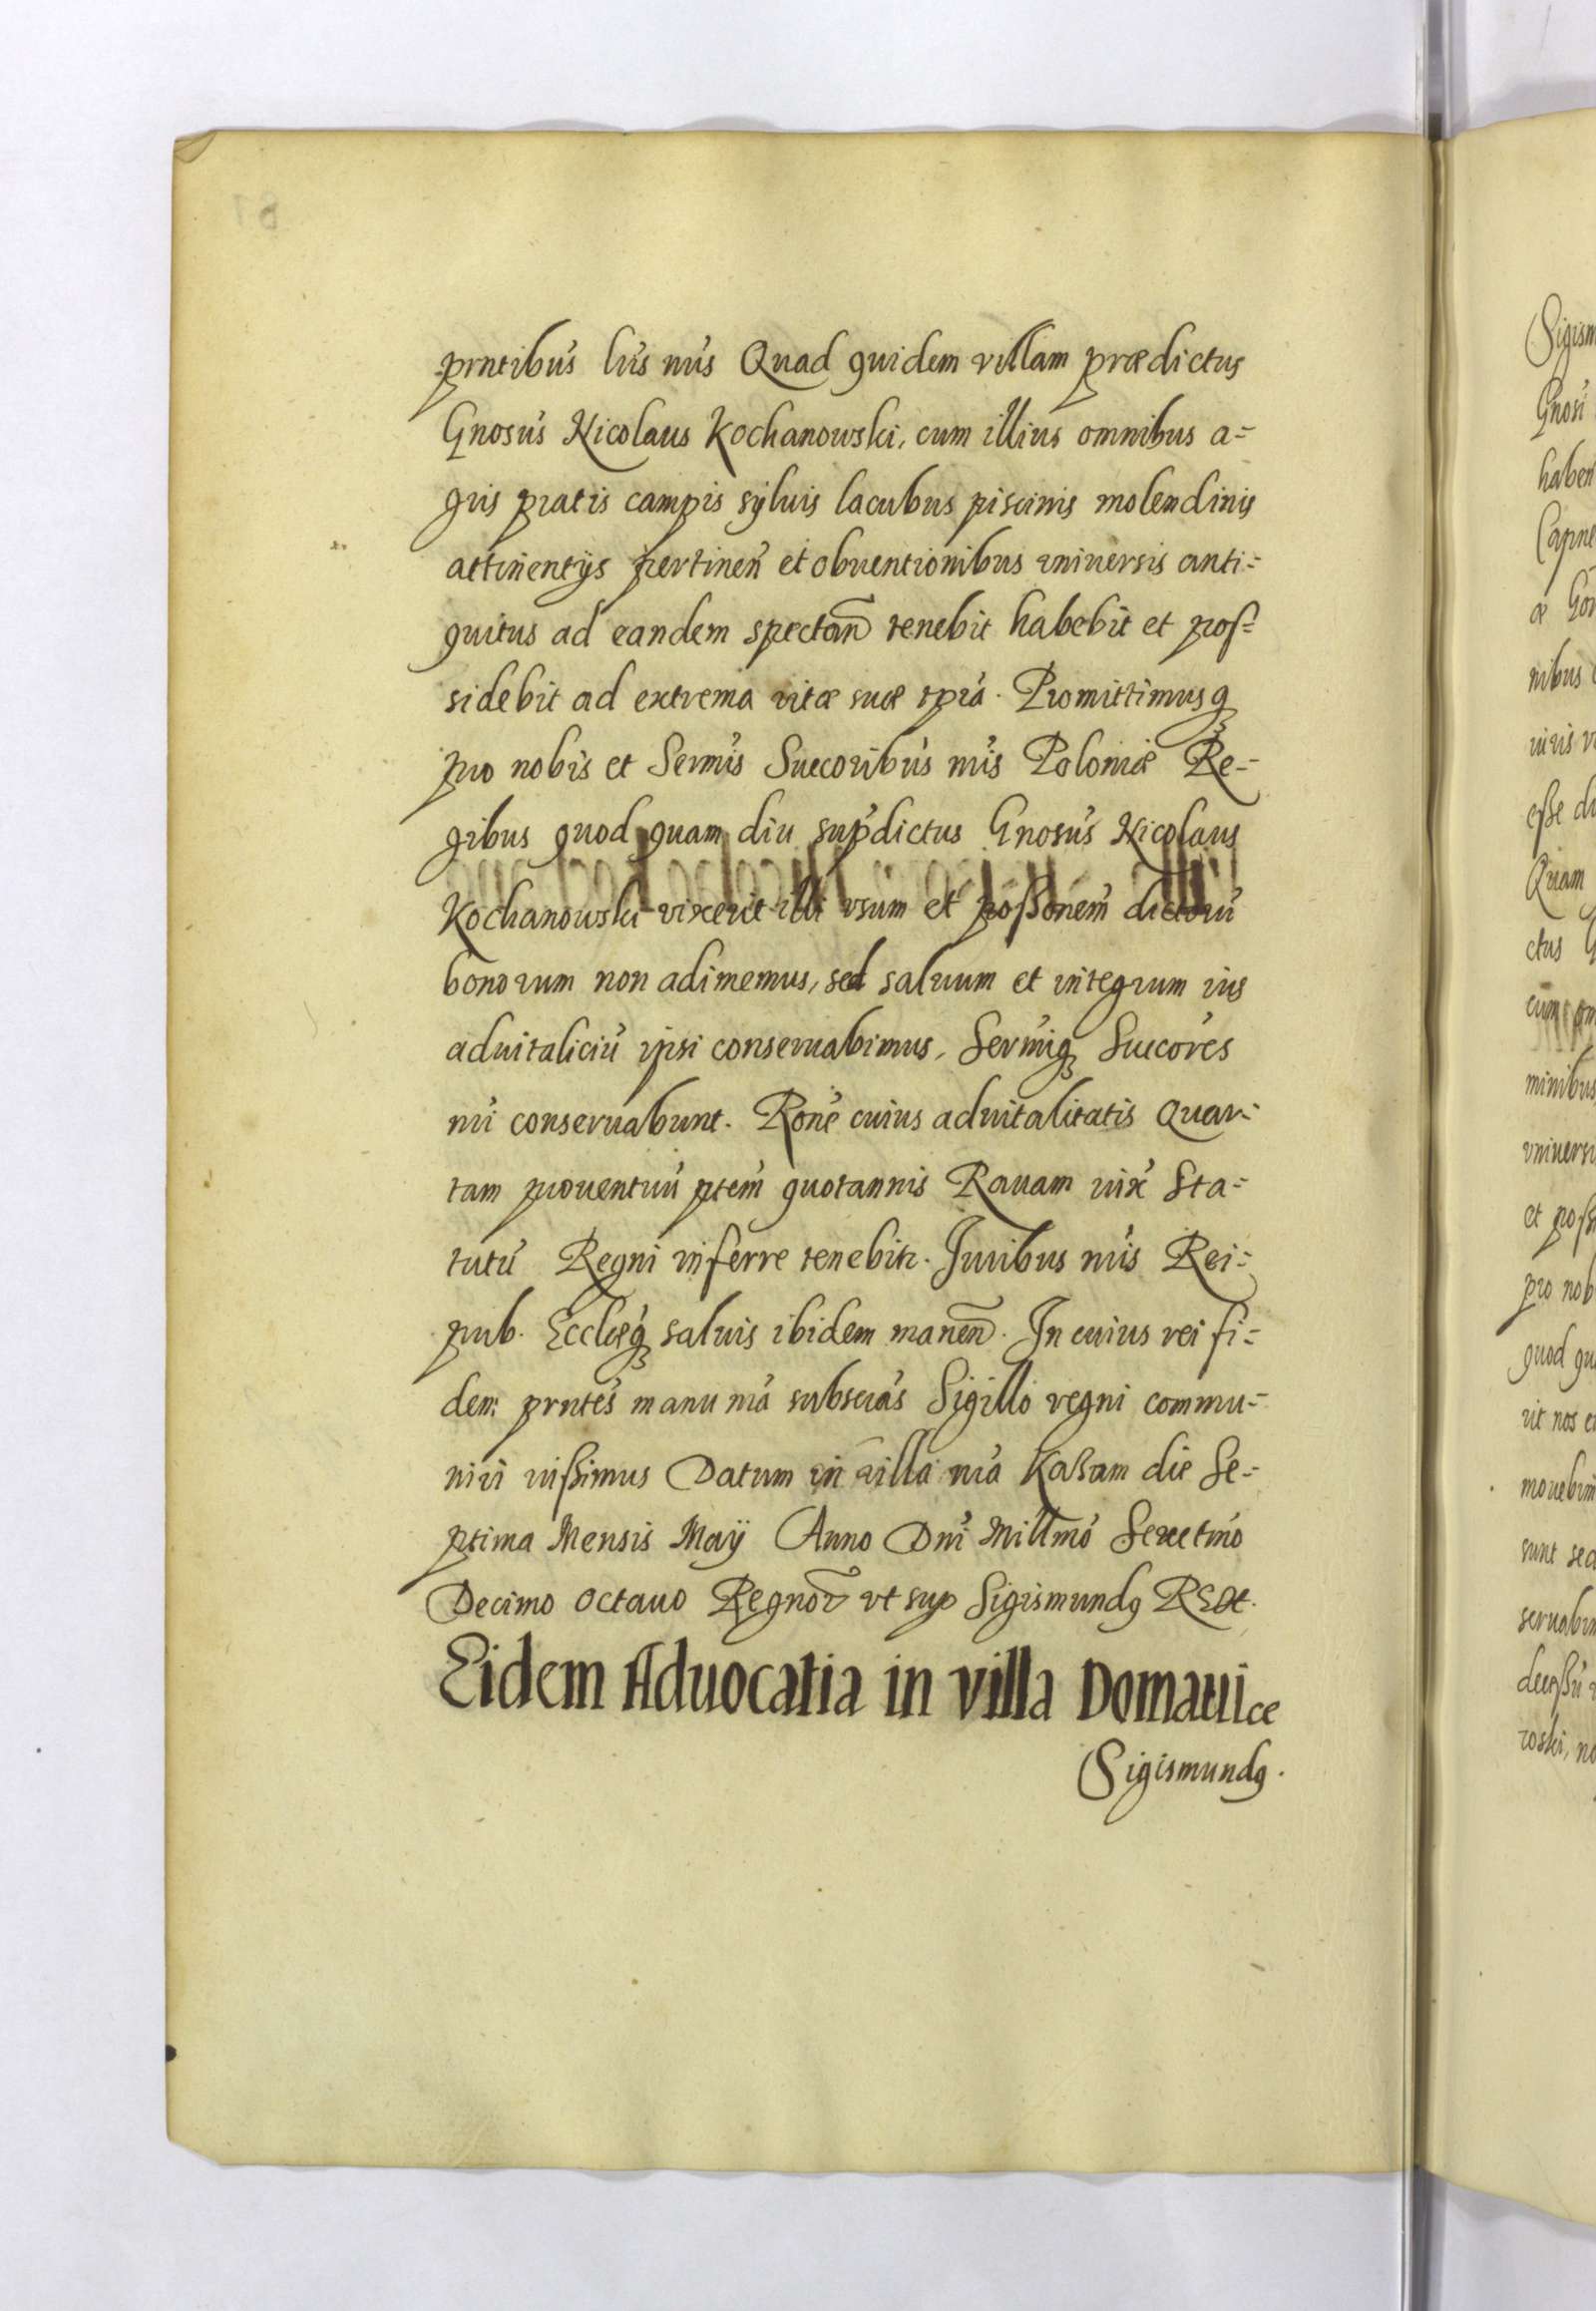 prntibus lris nris Quad quidem villam prædictus
Gnosus Nicolaus Kochanowski, cum illius omnibus a=
gris pratis campis syluis lacubus piscinis molendinis
attinentijs pertinen̄ et obuentionibus vniuersis anti=
quitus ad eandem spectan̄ tenebit habebit et pos=
sidebit ad extrema vitæ suæ tpra. Promittimusq
pro nobis et Sermis Succoribus nris Poloniæ Re=
gibus quod quam diu supdictus Gnosus Nicolaus
Kochanowski vixerit illi vsum et possonem dictorū
bonorum non adimemus, sed saluum et integrum ius
aduitaliciū ipsi conseruabimus, Sermiq Succores
nri conseruabunt. Rone cuius aduitalitatis Quar=
tam prouentuū ptem quotannis Rauam iux Sta=
tutū Regni inferre tenebitr. Juribus nris Rei=
pub. Ecclæq saluis ibidem manen̄. In cuius rei fi=
dem prntes manu nra subscras Sigillo regni commu=
niri iussimus Datum in villa nra Kassam die Se=
ptima Mensis Maÿ Anno Dni Millmo Sexctmo
Decimo octauo Regnor̄ vt sup Sigismundq Rex.
Eidem Aduocatia in villa Domauice
Sigismundq.
61
Sigism
Gnosi
haben
Capne
æ Gon
nibus
iuris
esse du
Quam
ctus G
cum om
minibus
vniuersi
et poss
pro nob
quod qu
rit nos e
mouebim
sunt sed
seruabim
decessū
roski, no